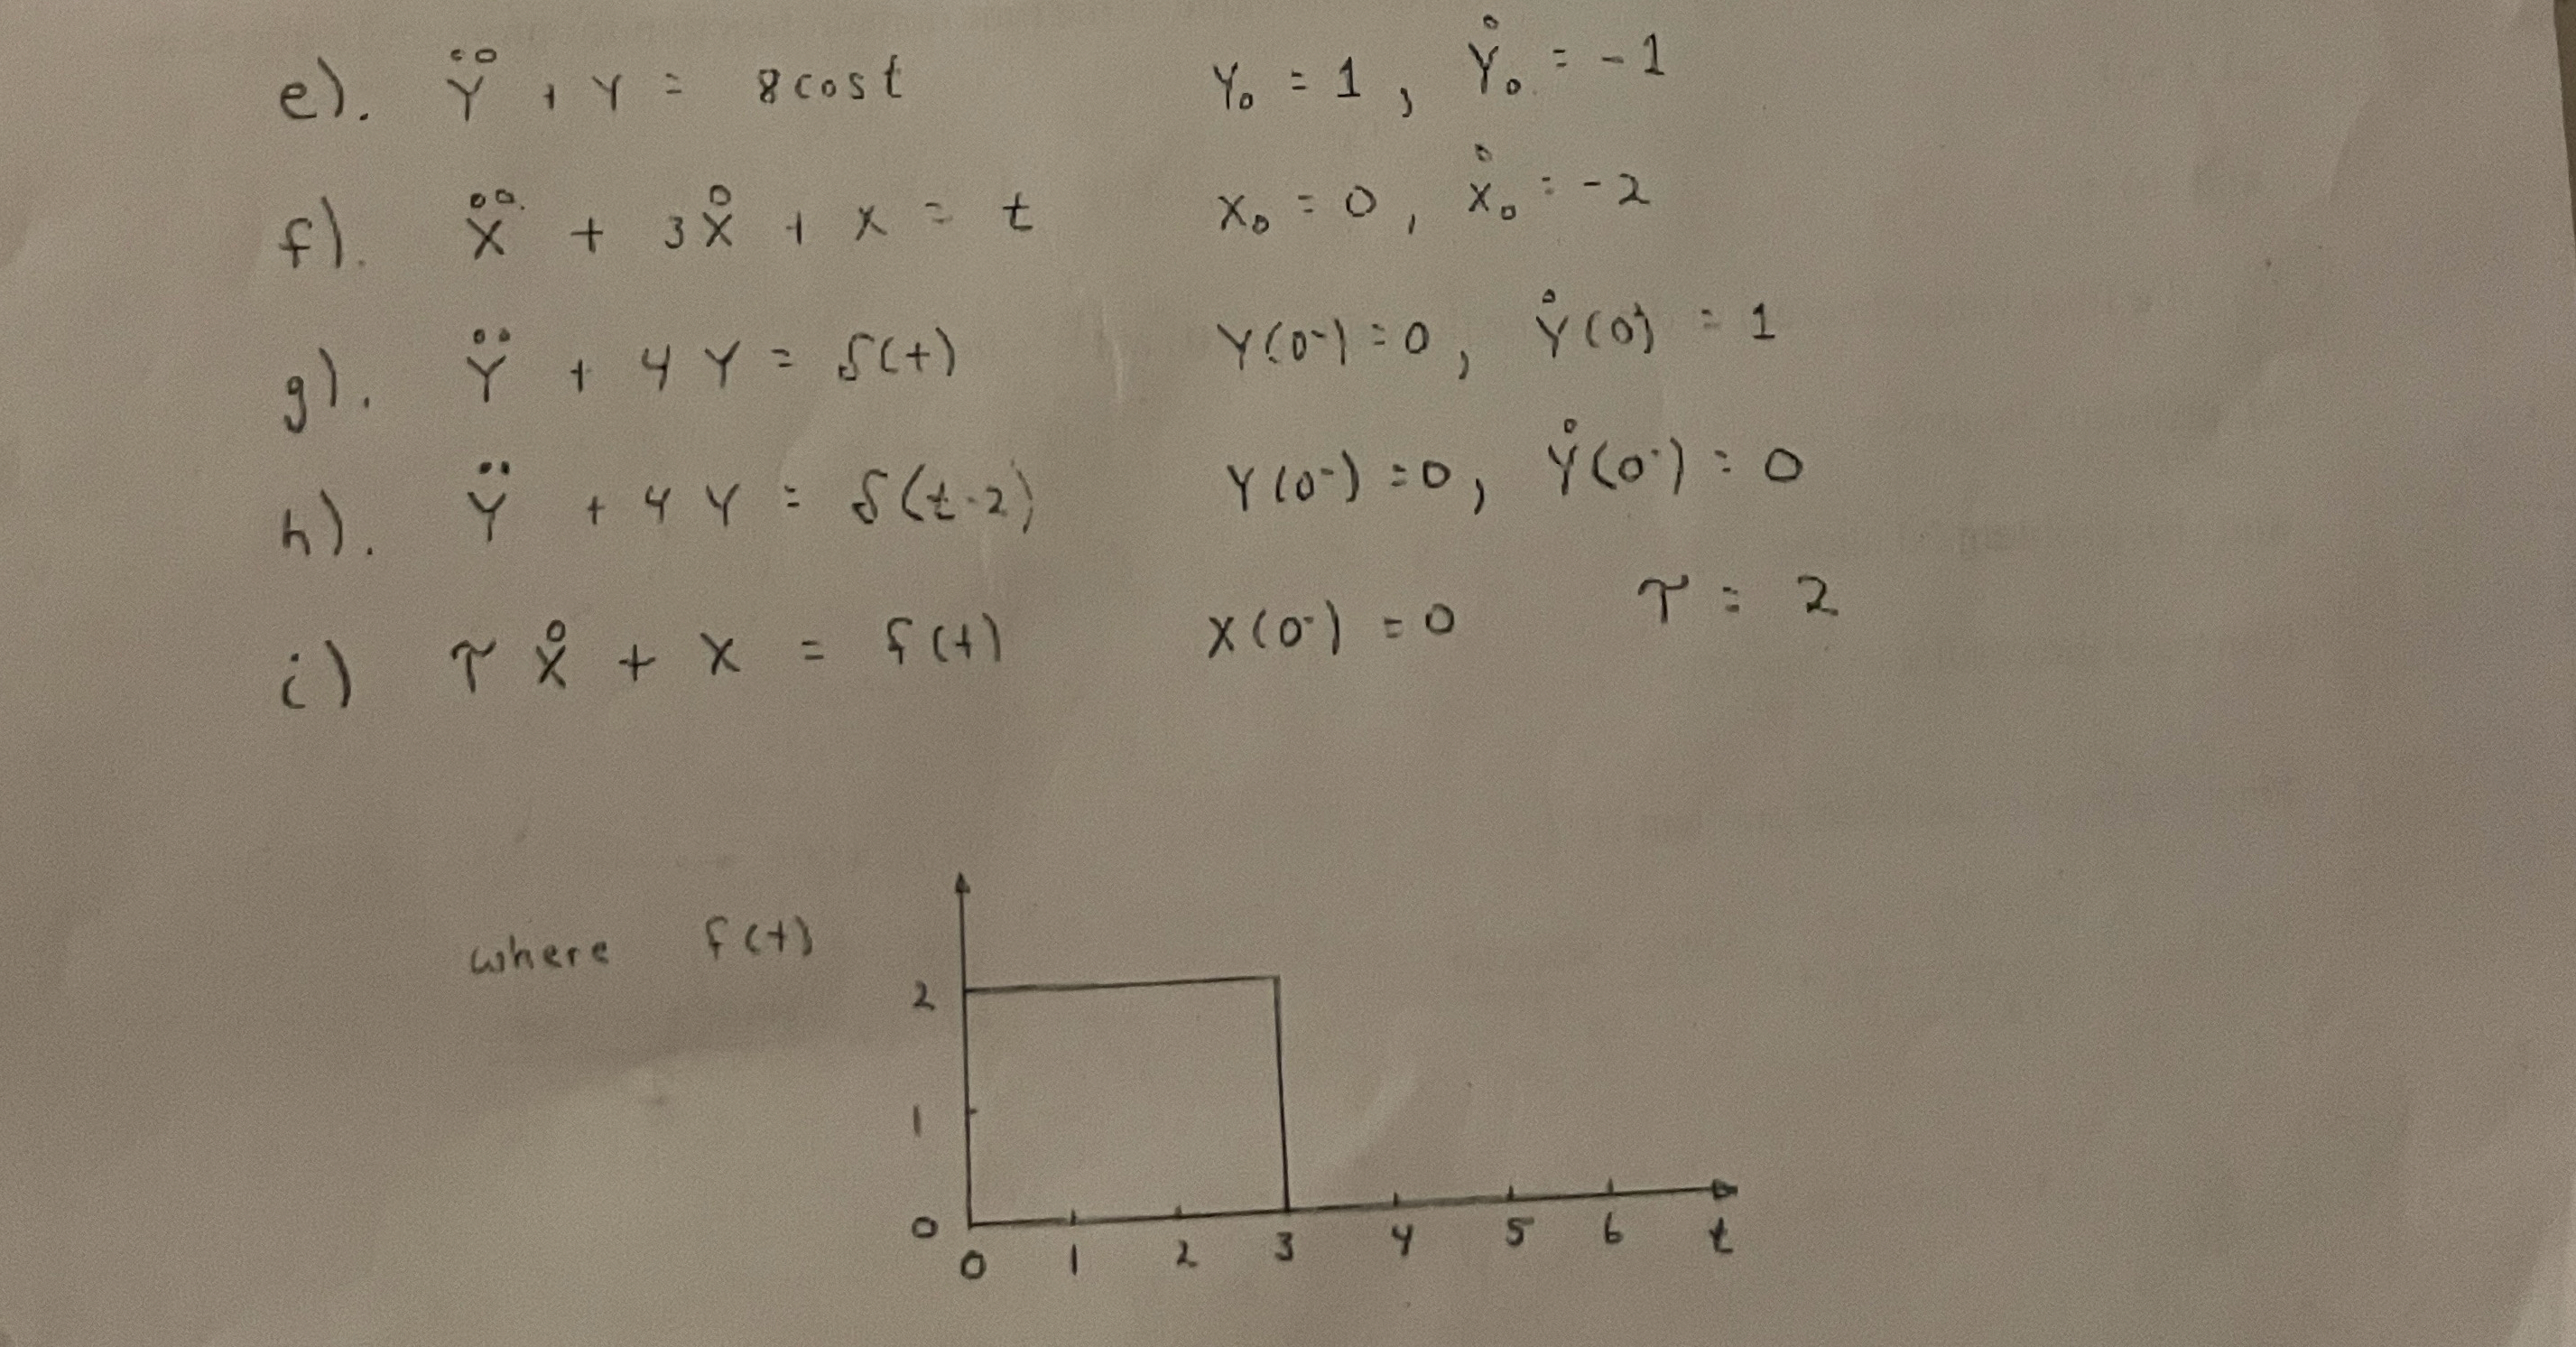 e). Ÿ + Y = 8cost Y₀ = 1, Ẏ₀ = -1
f). Ẍ + 3Ẋ + X = t X₀ = 0, Ẋ₀ = -2
g). Ÿ + 4Y = δ(t) Y(0⁻) = 0, Ẏ(0⁻) = 1
h). Ÿ + 4Y = δ(t-2) Y(0⁻) = 0, Ẏ(0⁻) = 0
i) τẊ + X = f(t) X(0⁻) = 0 τ = 2
where f(t)
2
1
0
0 1 2 3 4 5 6 t